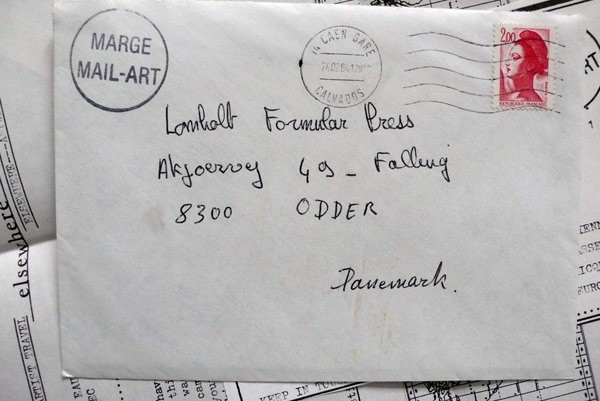 MARGE
MAIL-ART
14 CAEN GARE
CALVADOS
2,00
REPUBLIQUE FRANÇAISE
Lomholt Formular Press
Akjoervej 49 - Falling
8300 ODDER
Danemark.
elsewhere
ARTIST TRAVEL
KEEP IN TOUCH